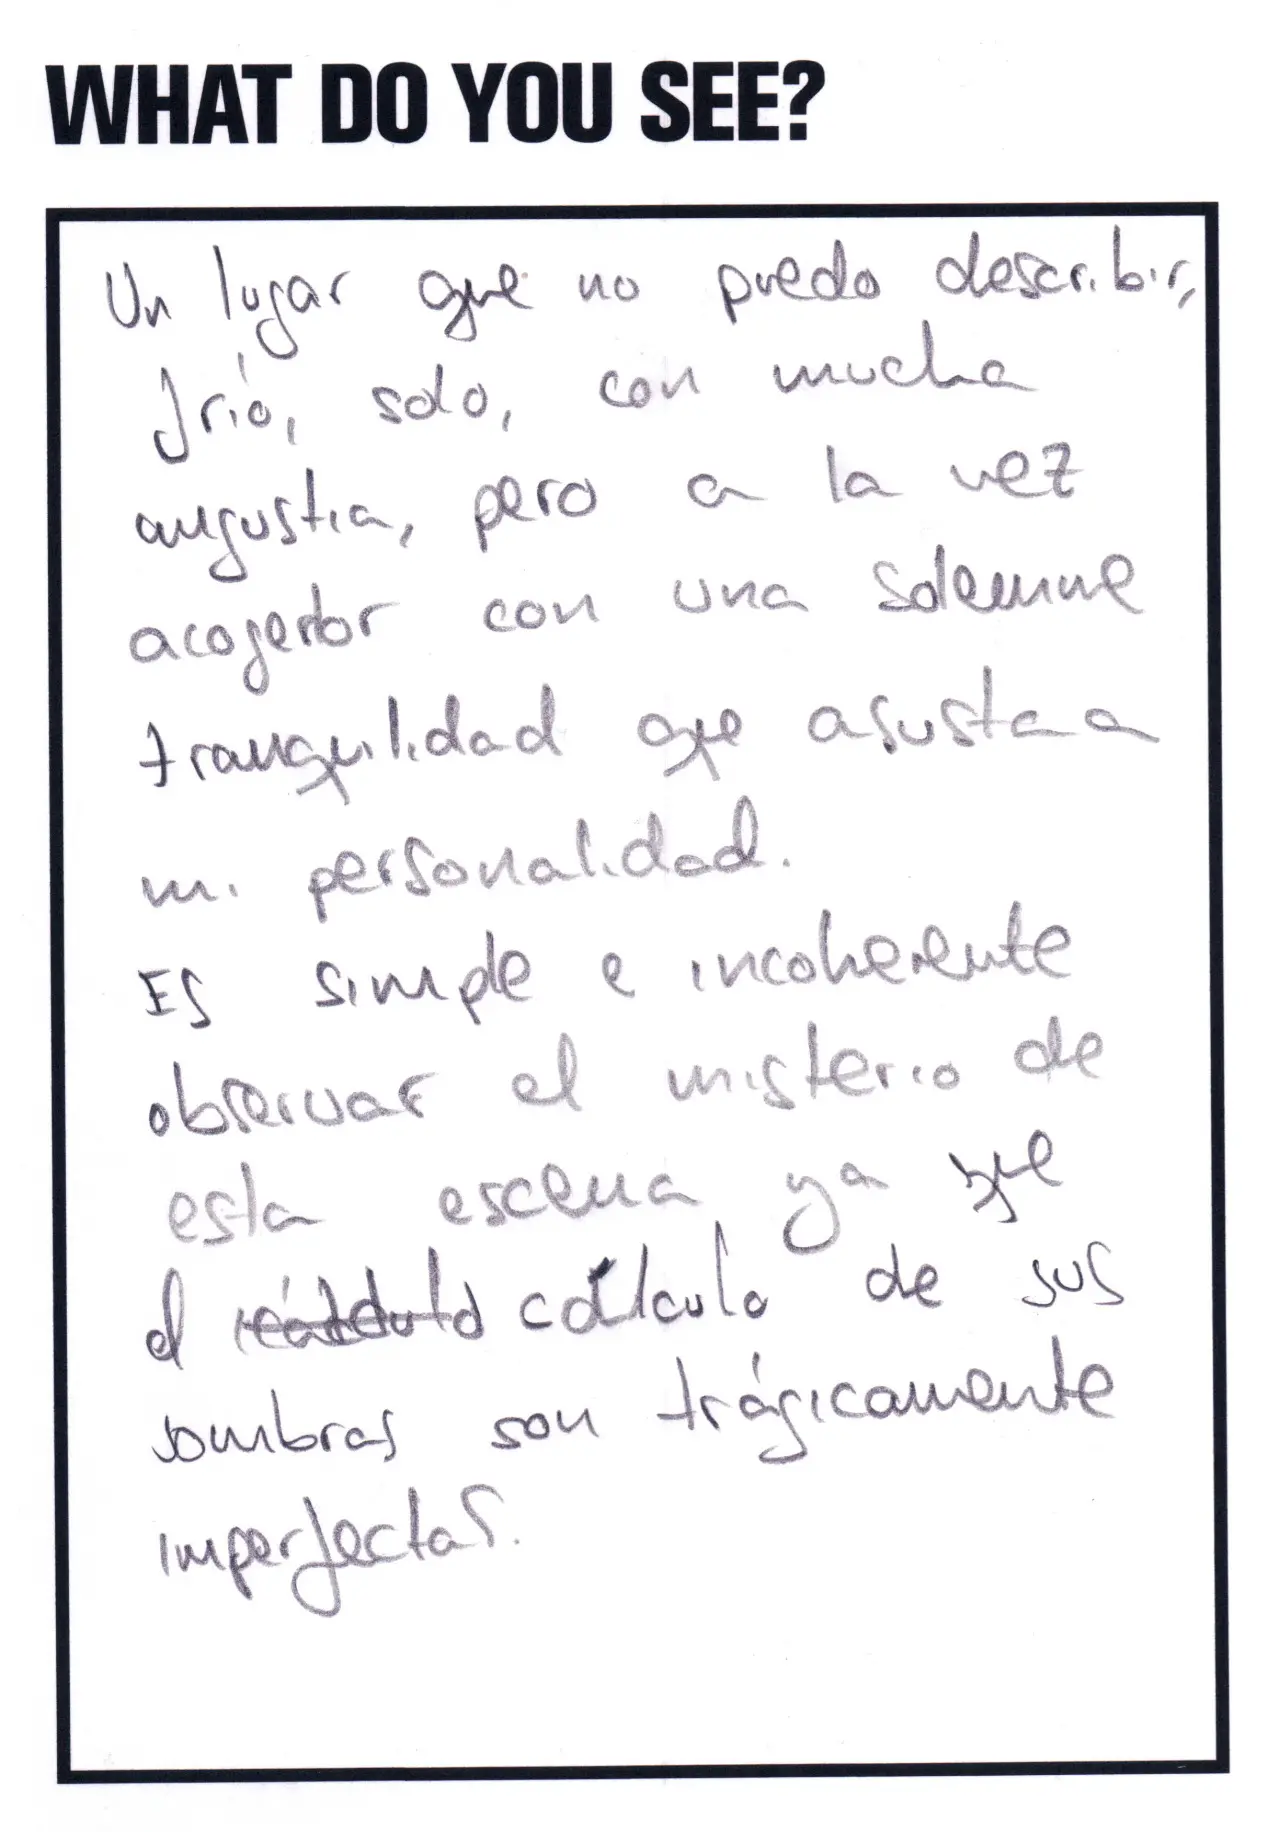 WHAT DO YOU SEE?
Un lugar que no puedo describir,
frío, solo, con mucha
angustia, pero a la vez
acogedor con una solemne
tranquilidad que asusta a
mi personalidad.
Es simple e incoherente
observar el misterio de
esta escena ya que
el cálculo de sus
sombras son trágicamente
imperfectas.